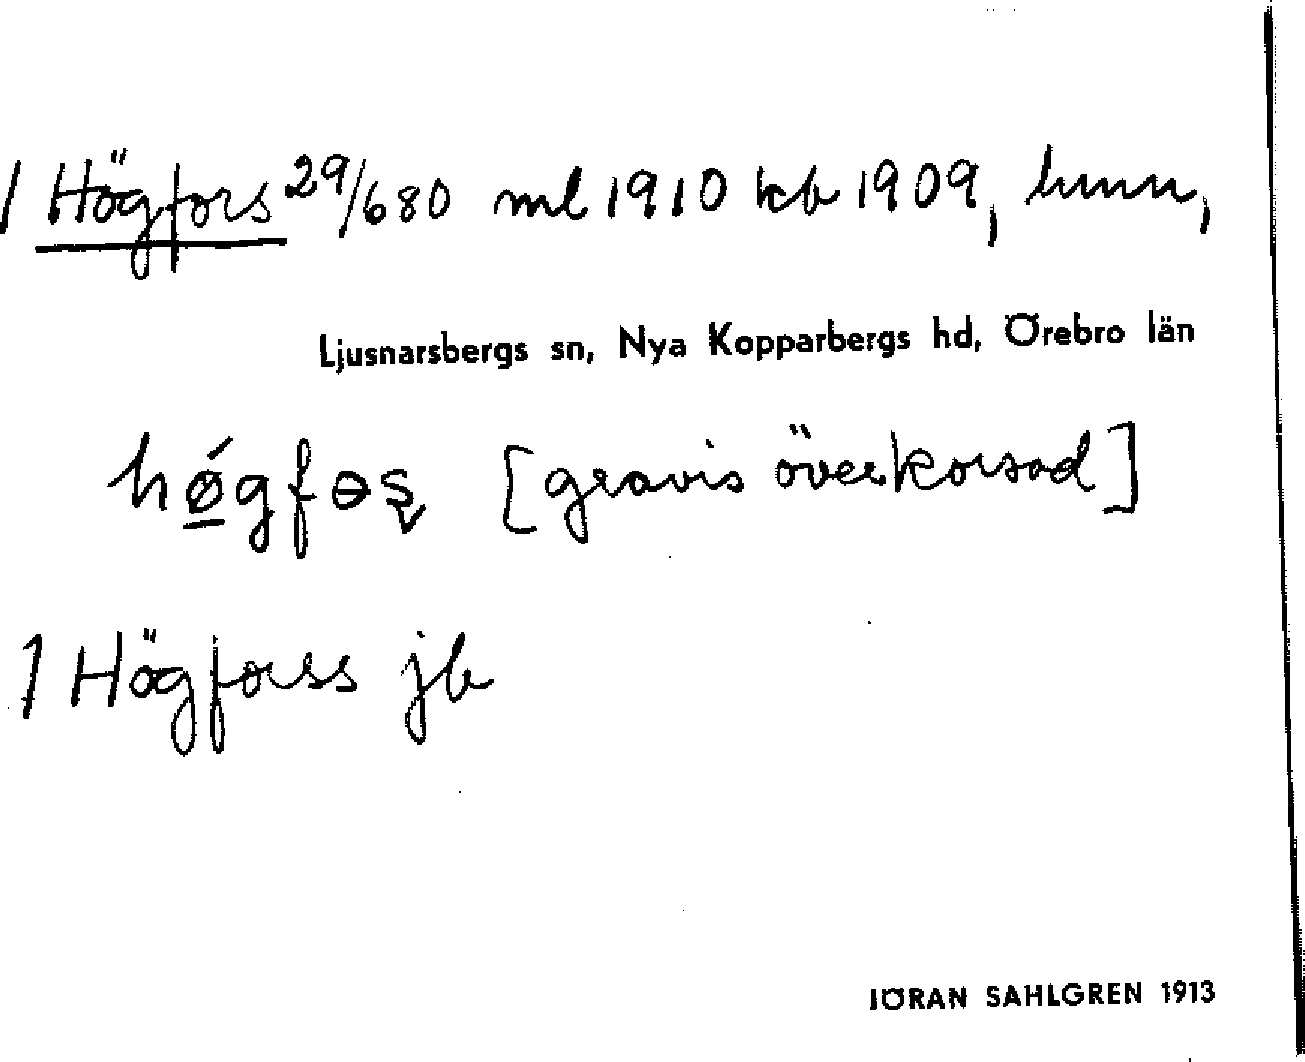 1 Högfors 29/680 ml 1910 kb 1909, hmn,
Ljusnarsbergs sn, Nya Kopparbergs hd, Örebro län
hǿgfɵș [gravis överkorsad]
1 Högforss jb
JÖRAN SAHLGREN 1913